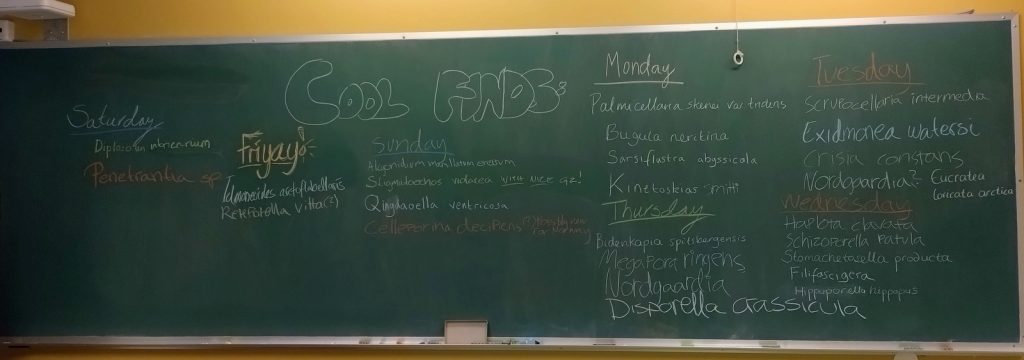 COOL FINDS:
Monday
Palmicellaria skenei var tridens
Bugula neritina
Sarsiflustra abyssicola
Kinetoskias smitti
Tuesday
Scrupocellaria intermedia
Exidmonea watersi
Crisia constans
Nordgaardia? Eucratea
loricata arctica
Wednesday
Haplota clavata
Schizoporella patula
Stomachetosella producta
Filifascigera
Hippoporella hippopus
Thursday
Bidenkapia spitsbergensis
Megapora ringens
Nordgaardia
Disporella crassicula
Friyay!
Reteporella vitta(?)
Saturday
Penetrantia sp
Sunday
Stigmatoechos violacea WITH NICE
Qingdaoella ventricosa
Celleporina decipiens (?) Possibly new
for Norway